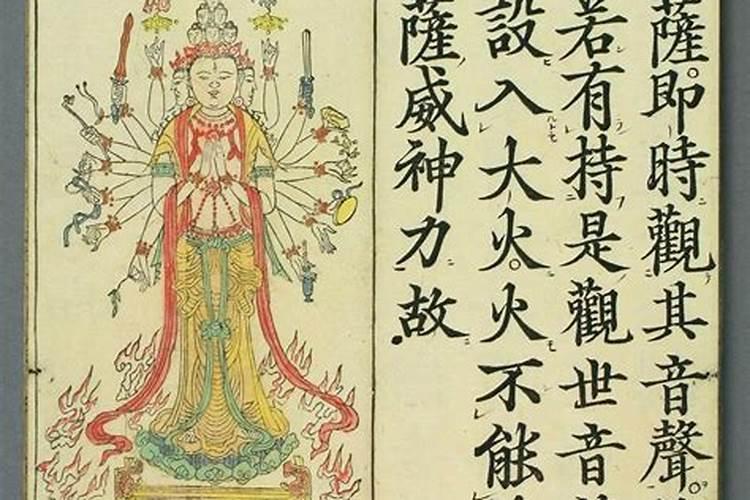 薩。即時觀其音聲。
若有持是觀世音
設入大火。火不能
薩威神力故。